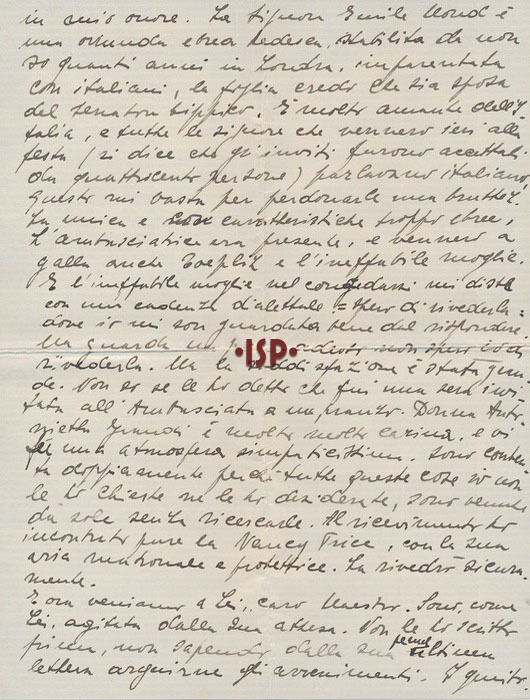 in mio onore. La Signora Emile Mond è
una oriunda ebrea tedesca, stabilita da non
so quanti anni in Londra, imparentata
con italiani, la figlia credo che sia sposa
del senatore Sippico. È molto amante dell'I
talia, e tutte le signore che vennero ieri alla
festa (si dice che gl'inviti furono accettati
da quattrocento persone) parlavano italiano
questo mi basta per perdonarle una bruttez.
za unica e caratteristiche troppo ebree.
L'ambasciatrice era presente, e vennero a
galla anche Toeplitz e l'ineffabile moglie.
E l'ineffabile moglie nel congedarsi mi disse
con una cadenza dialettale = spero di rivederla =
dove io mi son guardata bene dal rispondere.
Ma guarda un non spero di
rivederla. Ma la soddisfazione è stata gran
de. Non so se le ho detto che fui una sera invi
tata all'Ambasciata a un pranzo. Donna Anto.
nietta Grandi è molto molto carina, e vi
fu una atmosfera simpaticissima. Sono conten
ta doppiamente perchè tutte queste cose io non
le ho chieste ne le ho desiderate, sono venute
da sole senza ricercarle. Al ricevimento ho
incontrato pure la Nancy Price, con la sua
aria matronale e protettrice. La rivedrò sicura
mente.
E ora veniamo a Lei, caro Maestro. Sono, come
Lei, agitata dalla sua attesa. Non le ho scritto
prima, non sapendo dalla sua penul
ultima
lettera arguirne gli avvenimenti. I quito.
·ISP·